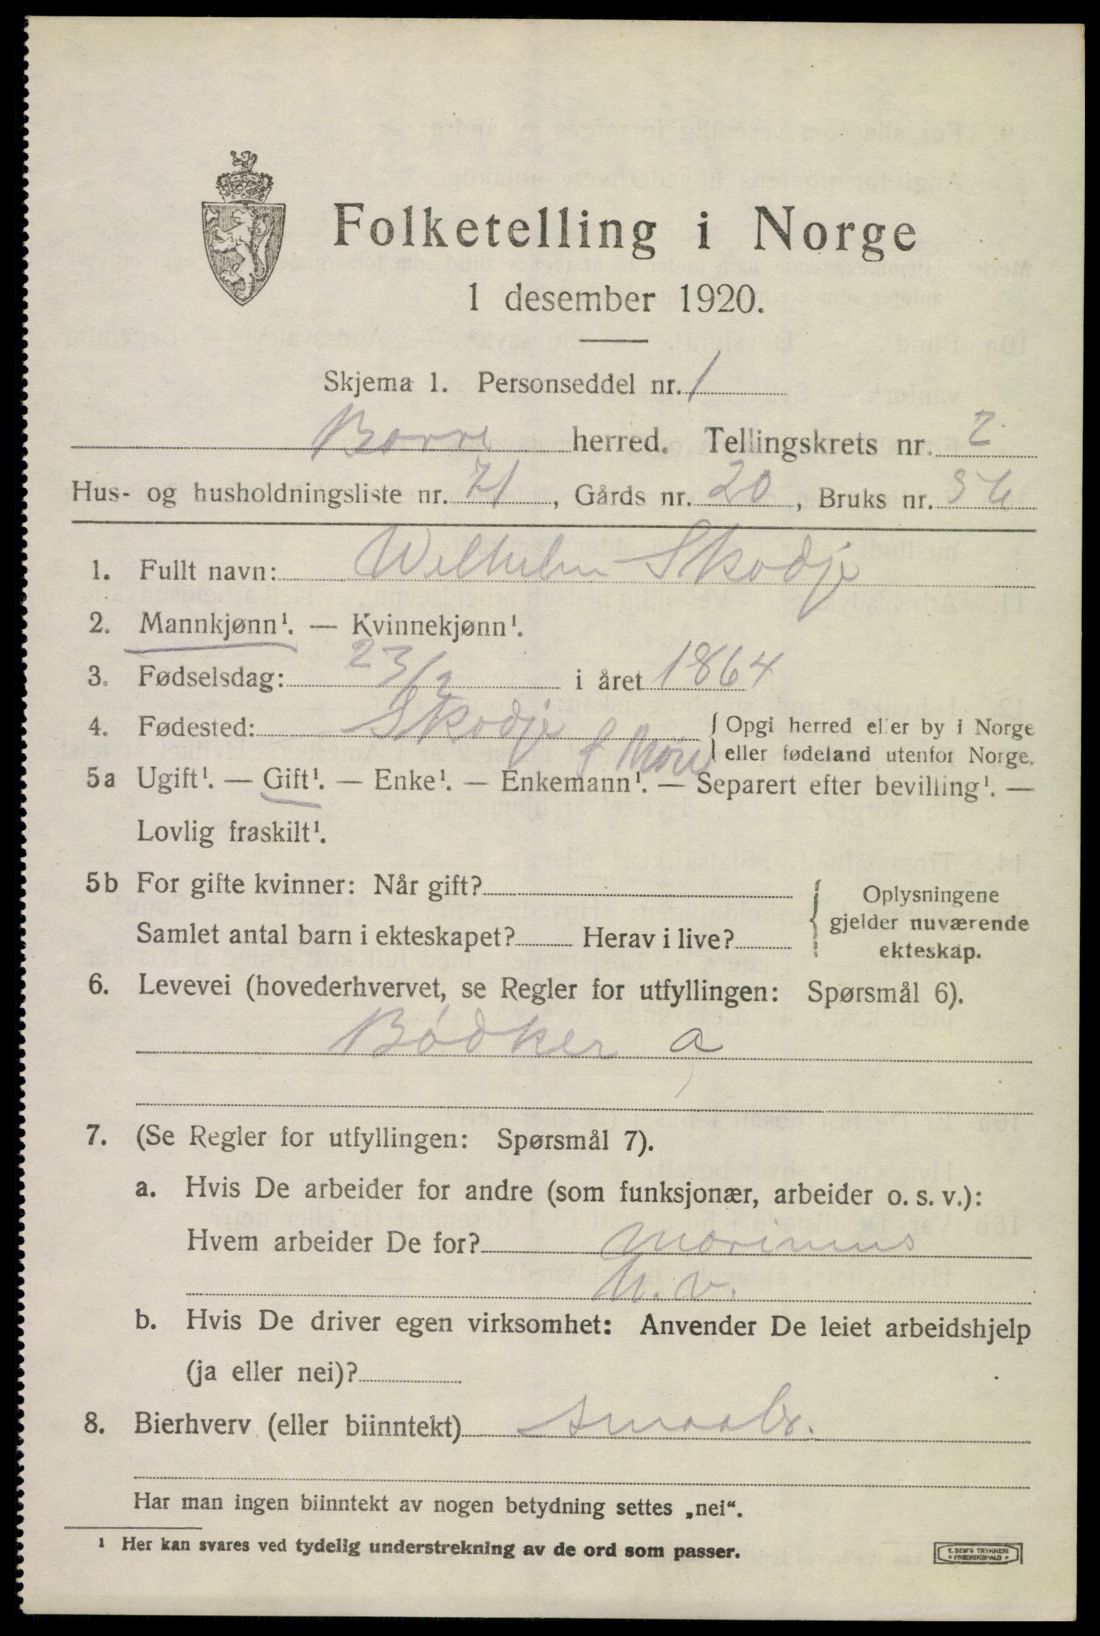 Folketelling i Norge
1 desember 1920.
Skjema 1. Personseddel nr. 1
Borre herred. Tellingskrets nr. 2
Hus- og husholdningsliste nr. 71, Gårds nr. 20, Bruks nr. 56
1. Fullt navn: Wilhelm Skodje
2. Mannkjønn¹. — Kvinnekjønn¹.
3. Fødselsdag: 23/2 i året 1864
4. Fødested: Skodje f Møre { Opgi herred eller by i Norge
eller fødeland utenfor Norge.
5a Ugift¹. — Gift¹. — Enke¹. — Enkemann¹. — Separert efter bevilling¹. —
Lovlig fraskilt¹.
5b For gifte kvinner: Når gift?
Samlet antal barn i ekteskapet? Herav i live?
{ Oplysningene
gjelder nuværende
ekteskap.
6. Levevei (hovederhvervet, se Regler for utfyllingen: Spørsmål 6).
Bødker a
7. (Se Regler for utfyllingen: Spørsmål 7).
a. Hvis De arbeider for andre (som funksjonær, arbeider o. s. v.):
Hvem arbeider De for? Marinens
U. v.
b. Hvis De driver egen virksomhet: Anvender De leiet arbeidshjelp
(ja eller nei)?
8. Bierhverv (eller biinntekt) Smaabr.
Har man ingen biinntekt av nogen betydning settes „nei“.
¹ Her kan svares ved tydelig understrekning av de ord som passer.
E. SEM'S TRYKKERI
FREDRIKSHALD